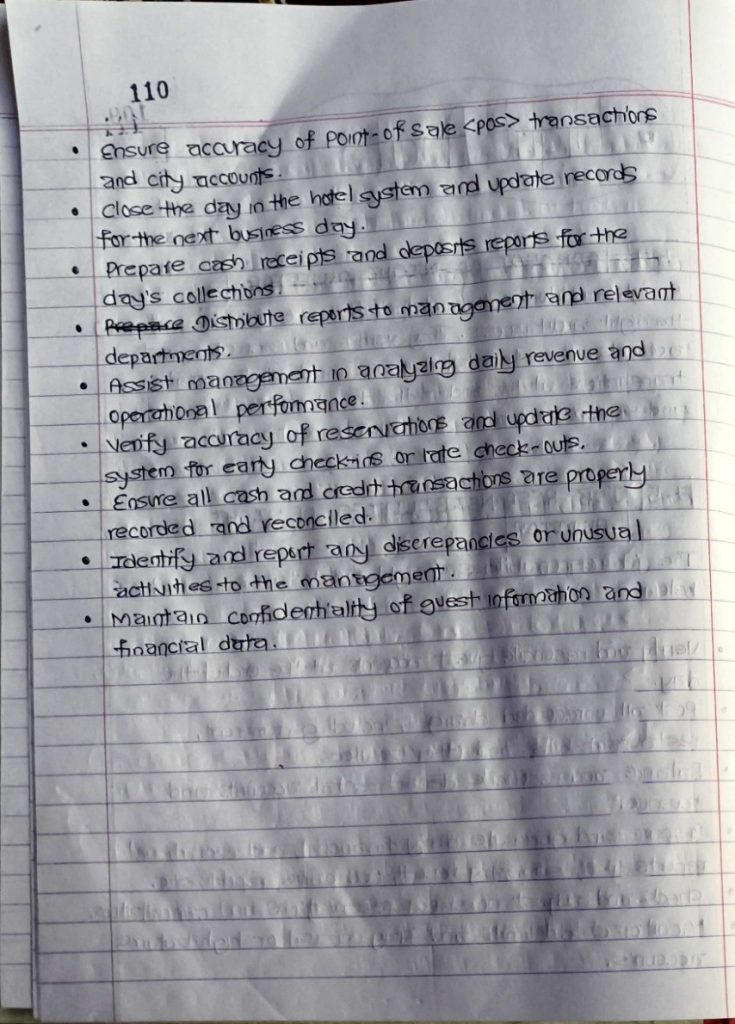 110
• Ensure accuracy of Point-of sale <pos> transactions
and city accounts.
• Close the day in the hotel system and update records
for the next business day.
• Prepare cash receipts and deposits reports for the
day's collections.
• Prepare Distribute reports to management and relevant
departments.
• Assist management in analyzing daily revenue and
operational performance.
• Verify accuracy of reservations and update the
system for early check-ins or late check-outs.
• Ensure all cash and credit transactions are properly
recorded and reconciled.
• Identify and report any discrepancies or unusual
activities to the management.
• Maintain confidentiality of guest information and
financial data.